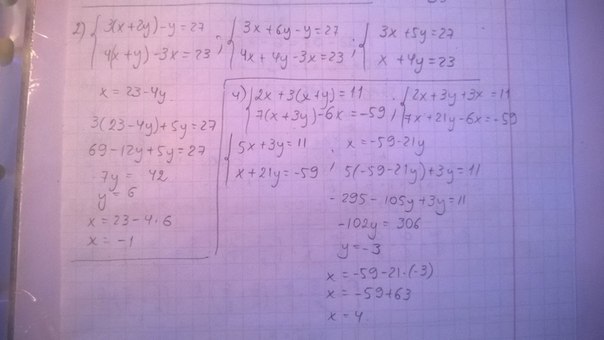 2) { 3(x+2y)-y=27 ; { 3x+6y-y=27 ; { 3x+5y=27
4(x+y)-3x=23 4x+4y-3x=23 x+4y=23
x=23-4y
3(23-4y)+5y=27
69-12y+5y=27
-7y= 42
y=6
x=23-4·6
x=-1
4) { 2x+3(x+y)=11 ; { 2x+3y+3x=11
7(x+3y)-6x=-59 7x+21y-6x=-59
{ 5x+3y=11 ; x=-59-21y
x+21y=-59 5(-59-21y)+3y=11
-295-105y+3y=11
-102y=306
y=-3
x=-59-21·(-3)
x=-59+63
x=4